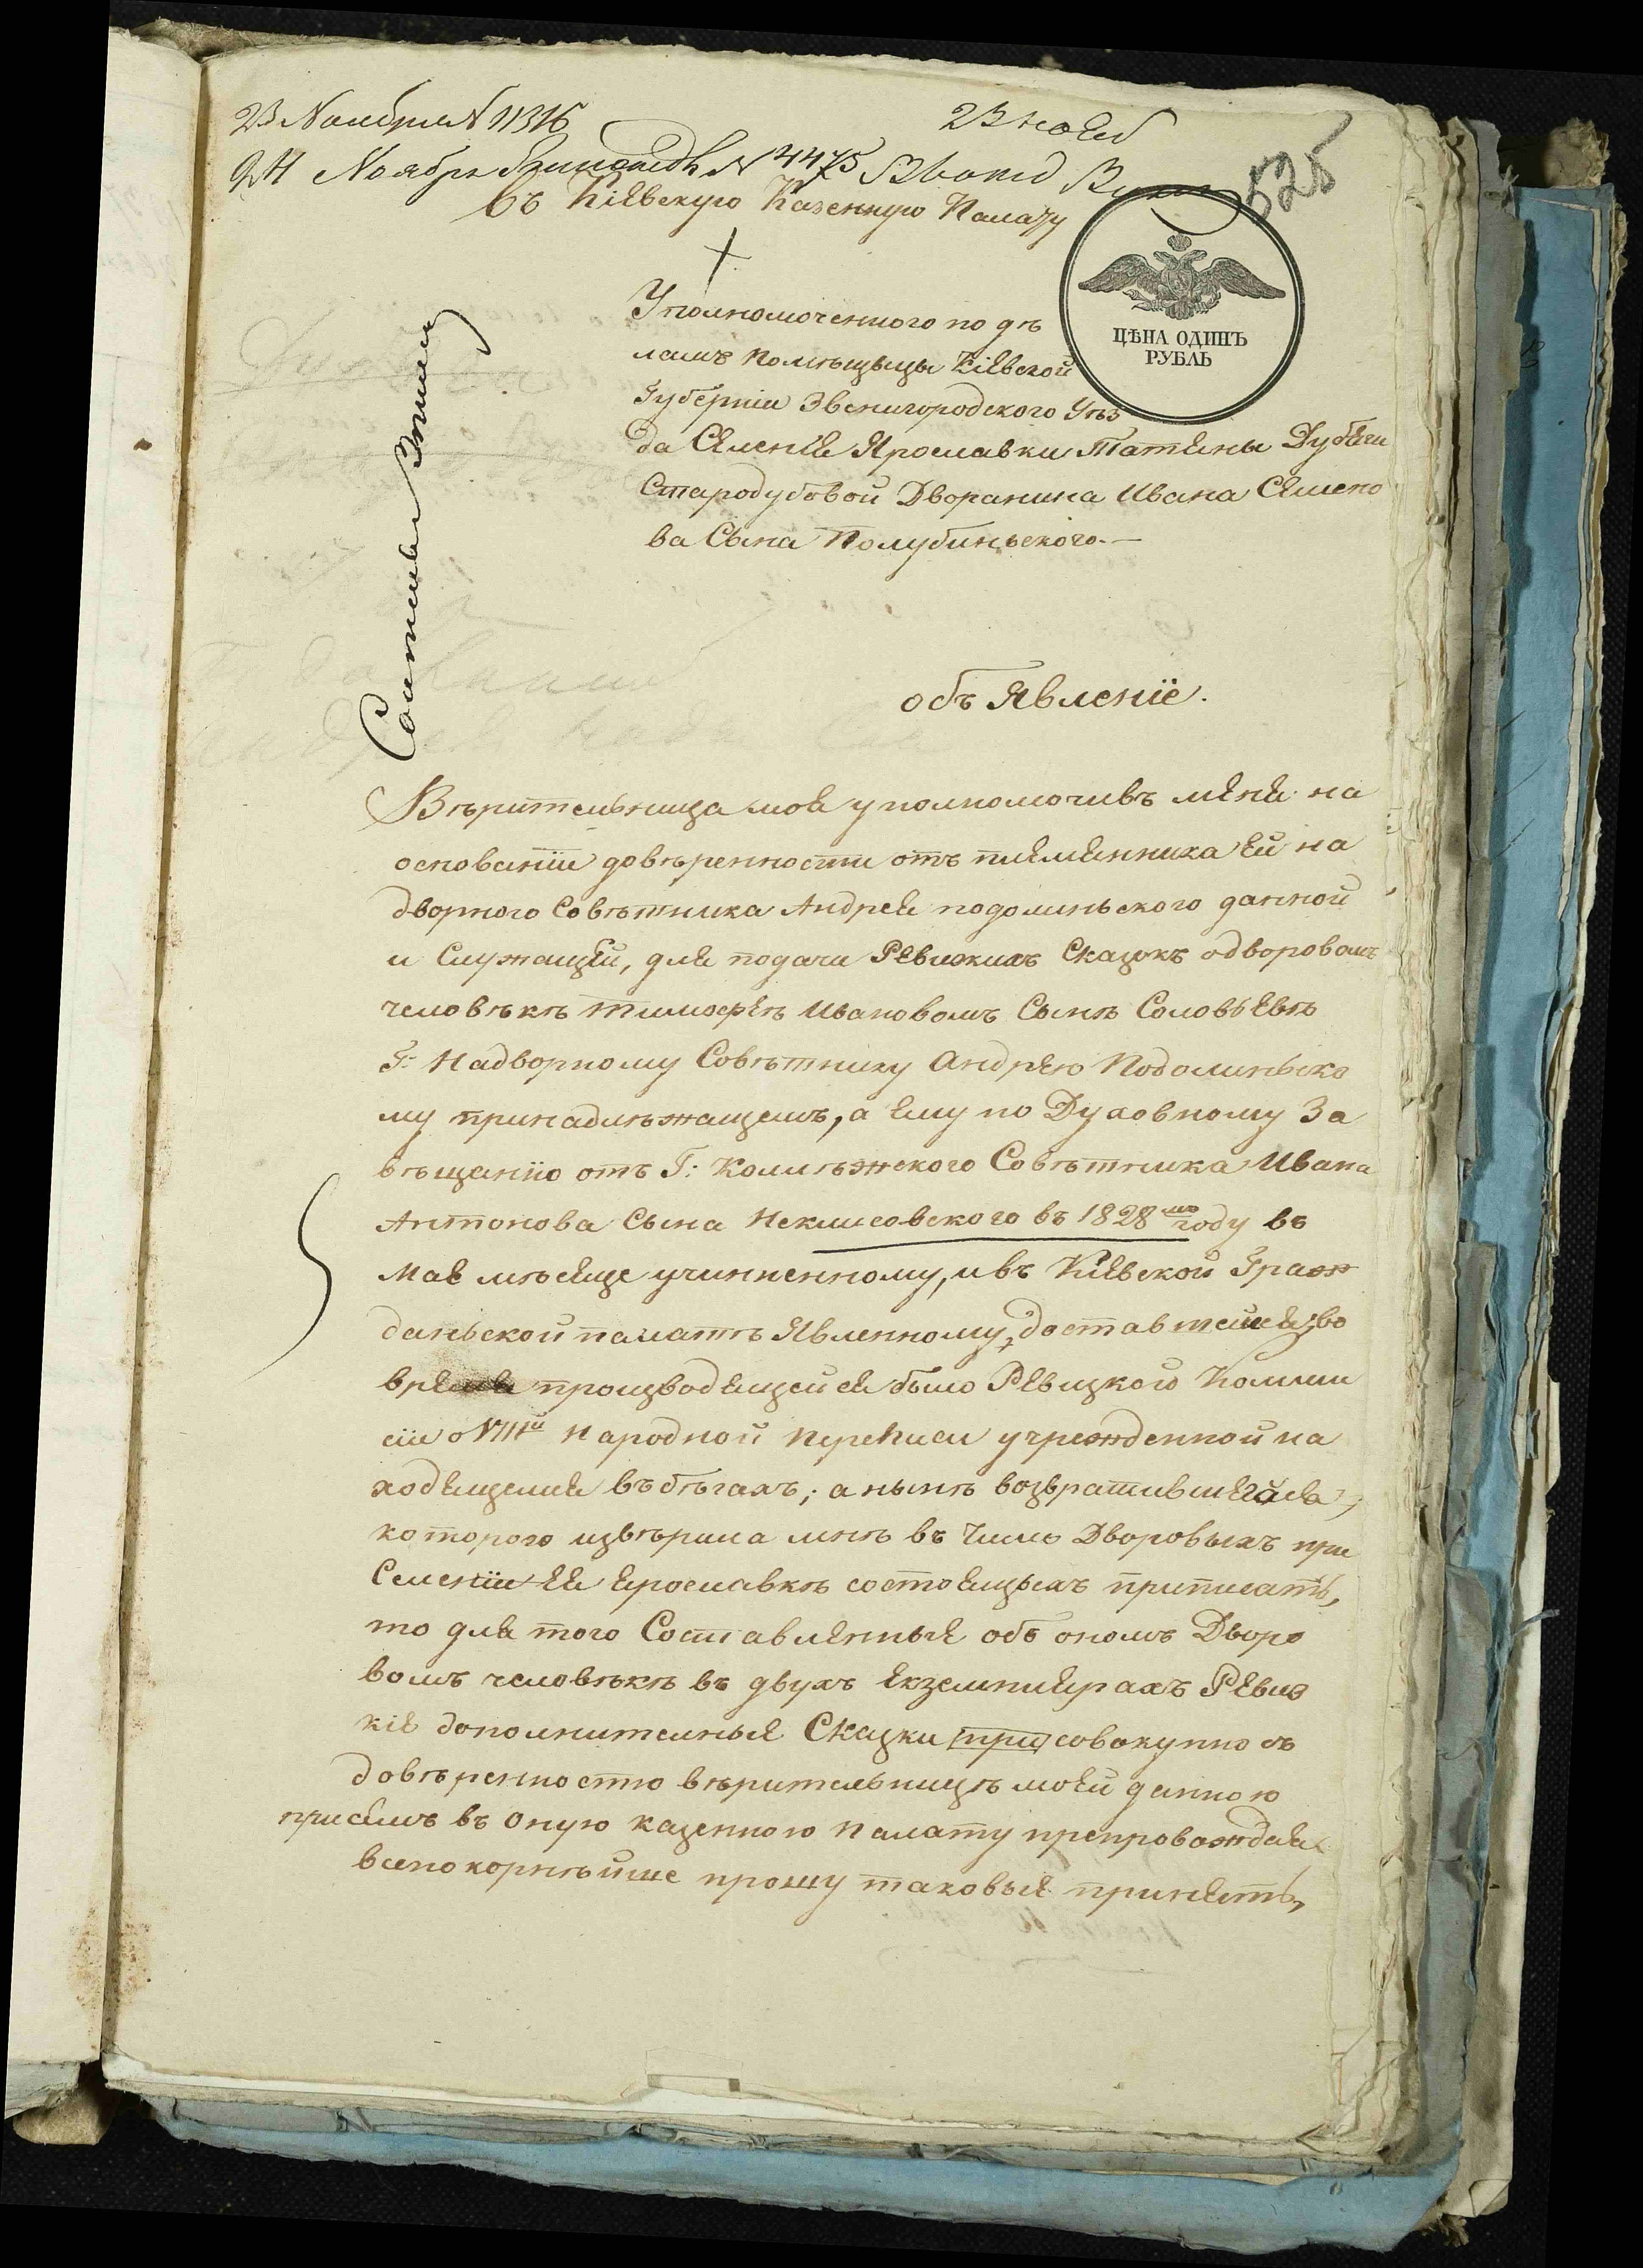 23 Ноября № 11316
23 нояб
525
24 Ноября № 4475
Въ Кіевскую Казенную Палату
ЦѢНА ОДИНЪ
РУБЛЬ
Уполномоченного по дѣ
ламъ помѣщыцы Кіевской
Губерніи Звенигородского Уѣз
да Селенія Ярославки Татяны
Стародубовой Дворанина Ивана Семено
ва Сына Полубиньского.—
объ Явленіе.
Вѣрительница моя уполномочивъ меня на
основаніи довѣренности отъ племянника ей на
дворного Совѣтника Андрея подолиньского данной
и Служащей, для подачи Ревижихъ Сказокъ одворовомъ
человѣкѣ тимофеѣ Ивановомъ Сынѣ Соловьевѣ
Г: Надворному Совѣтнику Андрею Подолиньско
му принадлѣжащемъ, а ему по Духовному За
вѣщанію отъ Г: Колилѣжского Совѣтника Ивана
Антонова Сына въ 1828мъ году въ
Мае мѣсяце учиненному, и въ Кіевской Граж
даньской палатѣ Явленному, во
время производящейся было Ревизкого Коммы
сіи о VIIIй Народной переписи учрежденной на
ходящемся въ бѣгахъ; а нынѣ возвратившегося,
которого извѣрила мнѣ въ Число Дворовыхъ при
Селеніи ея ярославкѣ состоящыхъ приписать,
то для того Составленныя объ ономъ Дворо
вомъ человѣкѣ въ двухъ екземплярахъ Ревиз
кія дополнителныя Сказки при совокупно съ
довѣренностю вѣрительницѣ моей данною
присемъ въ оную казенною палату препровождая
всепокорнѣйше прошу таковыя принять,